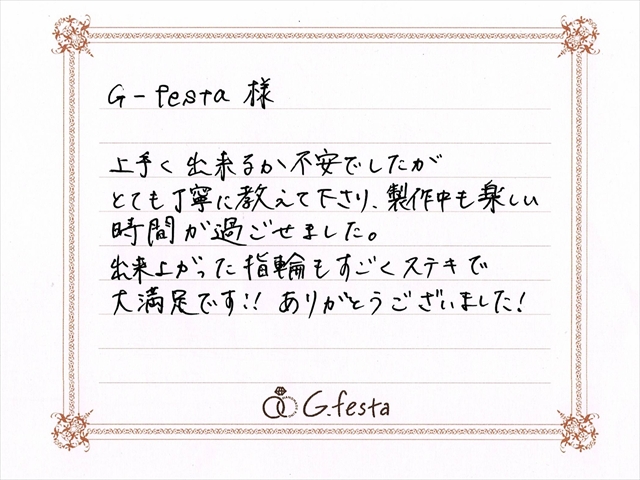 G-festa 様
上手く出来るか不安でしたが
とても丁寧に教えて下さり、製作中も楽しい
時間が過ごせました。
出来上がった指輪もすごくステキで
大満足です!! ありがとうございました!
G.festa